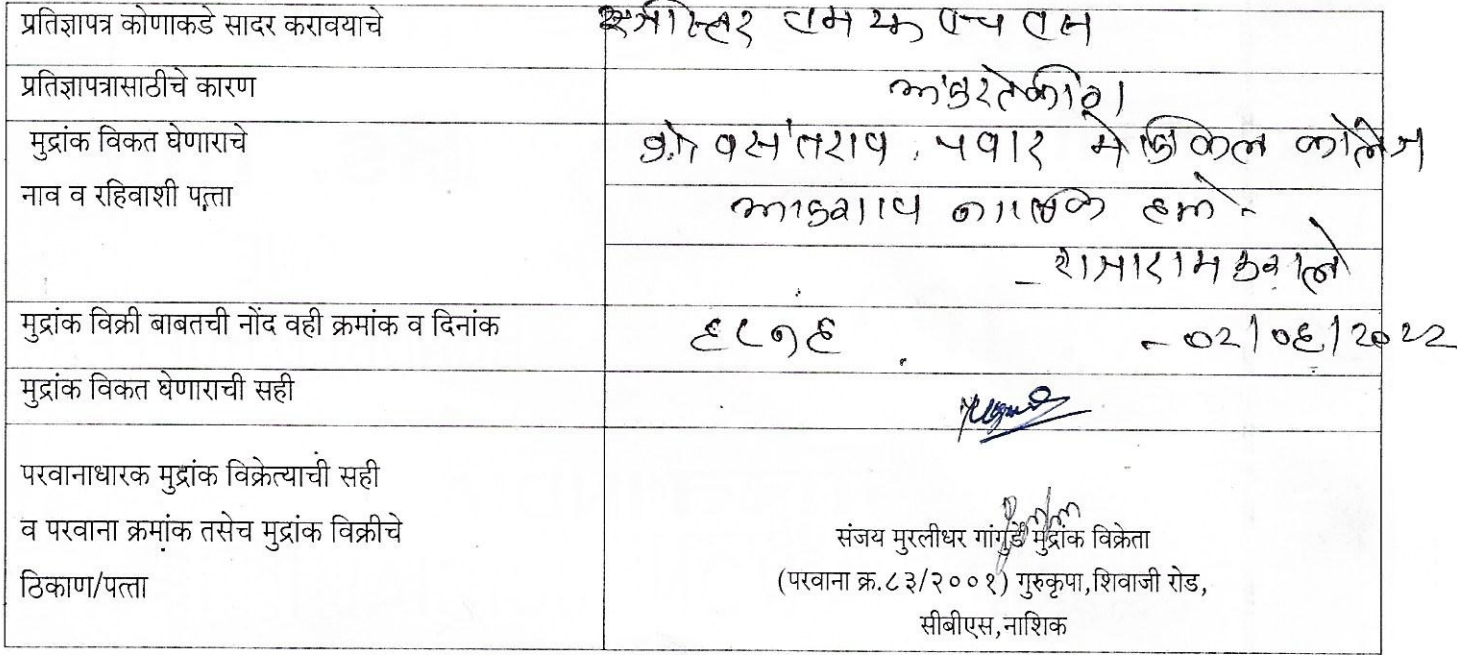 प्रतिज्ञापत्र कोणाकडे सादर करावयाचे
प्रतिज्ञापत्रासाठीचे कारण
मुद्रांक विकत घेणाराचे
वसंतराव पवार मेडिकल कॉलेज
नाव व रहिवाशी पत्ता
नाशिक
राजाराम
मुद्रांक विक्री बाबतची नोंद वही क्रमांक व दिनांक
- ०२/०६/२०२२
मुद्रांक विकत घेणाराची सही
परवानाधारक मुद्रांक विक्रेत्याची सही
व परवाना क्रमांक तसेच मुद्रांक विक्रीचे
ठिकाण/पत्ता
संजय मुरलीधर गांगुर्डे मुद्रांक विक्रेता
(परवाना क्र.८३/२००१) गुरुकृपा,शिवाजी रोड,
सीबीएस,नाशिक